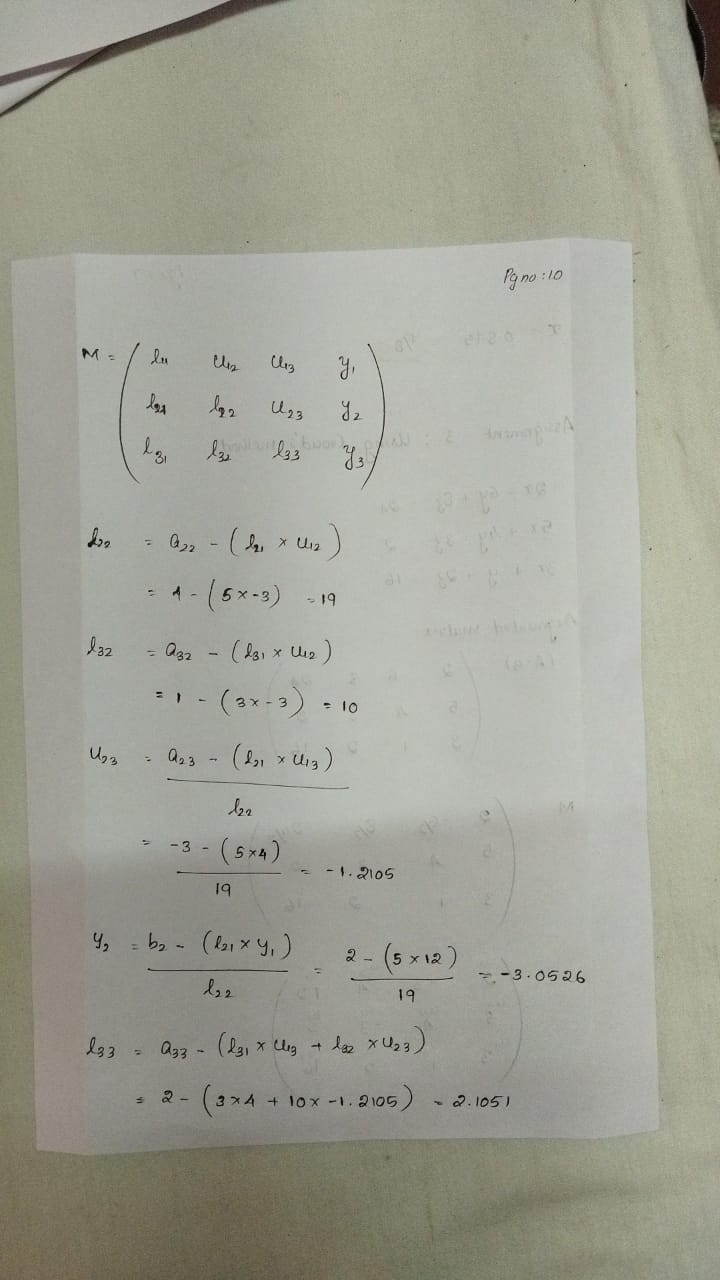 Pg no : 10
M = ( l11 u12 u13 y1
l21 l22 u23 y2
l31 l32 l33 y3 )
l22 = a22 - ( l21 x u12 )
= 4 - ( 5 x -3 ) = 19
l32 = a32 - ( l31 x u12 )
= 1 - ( 3 x -3 ) = 10
u23 = a23 - ( l21 x u13 )
l22
= -3 - ( 5 x 4 )
19
= -1.2105
y2 = b2 - ( l21 x y1 )
l22
= 2 - ( 5 x 12 )
19
= -3.0526
l33 = a33 - ( l31 x u13 + l32 x u23 )
= 2 - ( 3 x 4 + 10 x -1.2105 ) = 2.1051